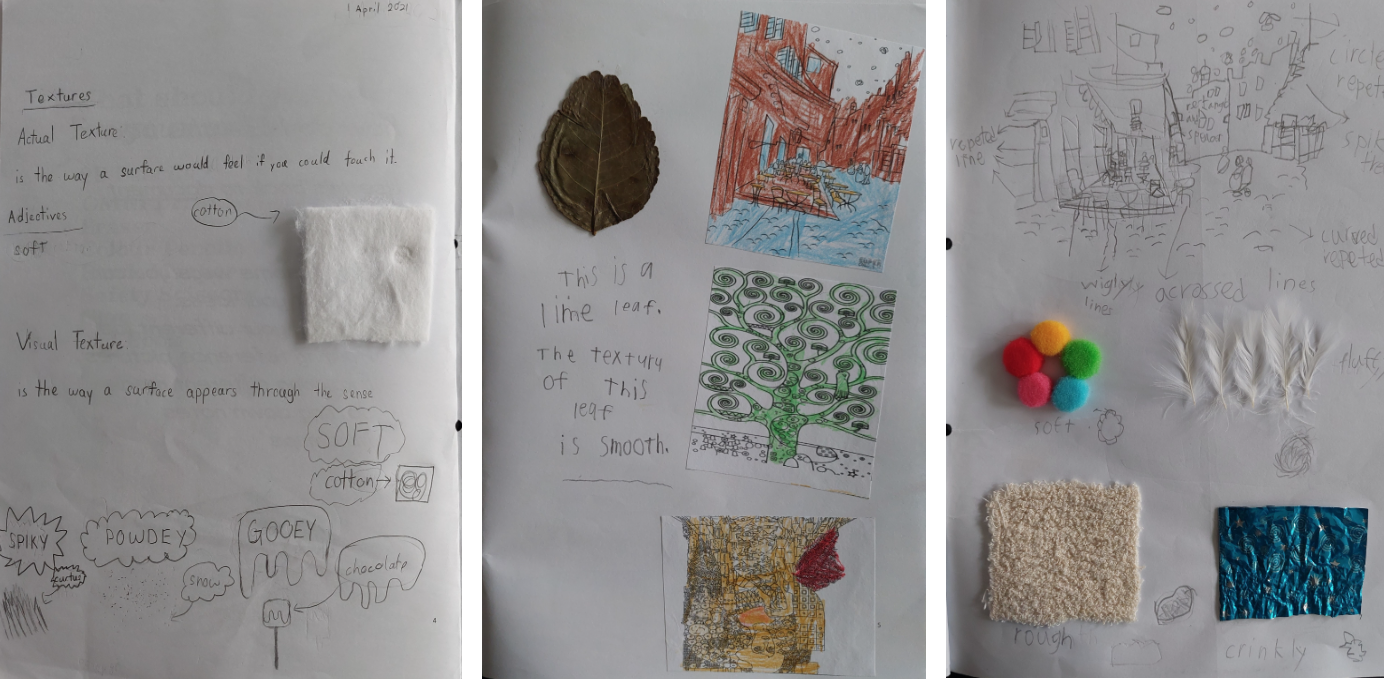 1 April 2021
Textures
Actual Texture:
is the way a surface would feel if you could touch it.
Adjectives
cotton
soft
Visual Texture:
is the way a surface appears through the sense
SOFT
cotton
SPIKY
POWDEY
GOOEY
cartus
snow
chocolate
4
This is a
lime leaf.
The textury
of this
leaf
is smooth.
5
circle
repete
rectange
and
speuar
spik
repeted
line
curved
repeted
wigly
lines
acrossed lines
soft
fluffy
rough
crinkly